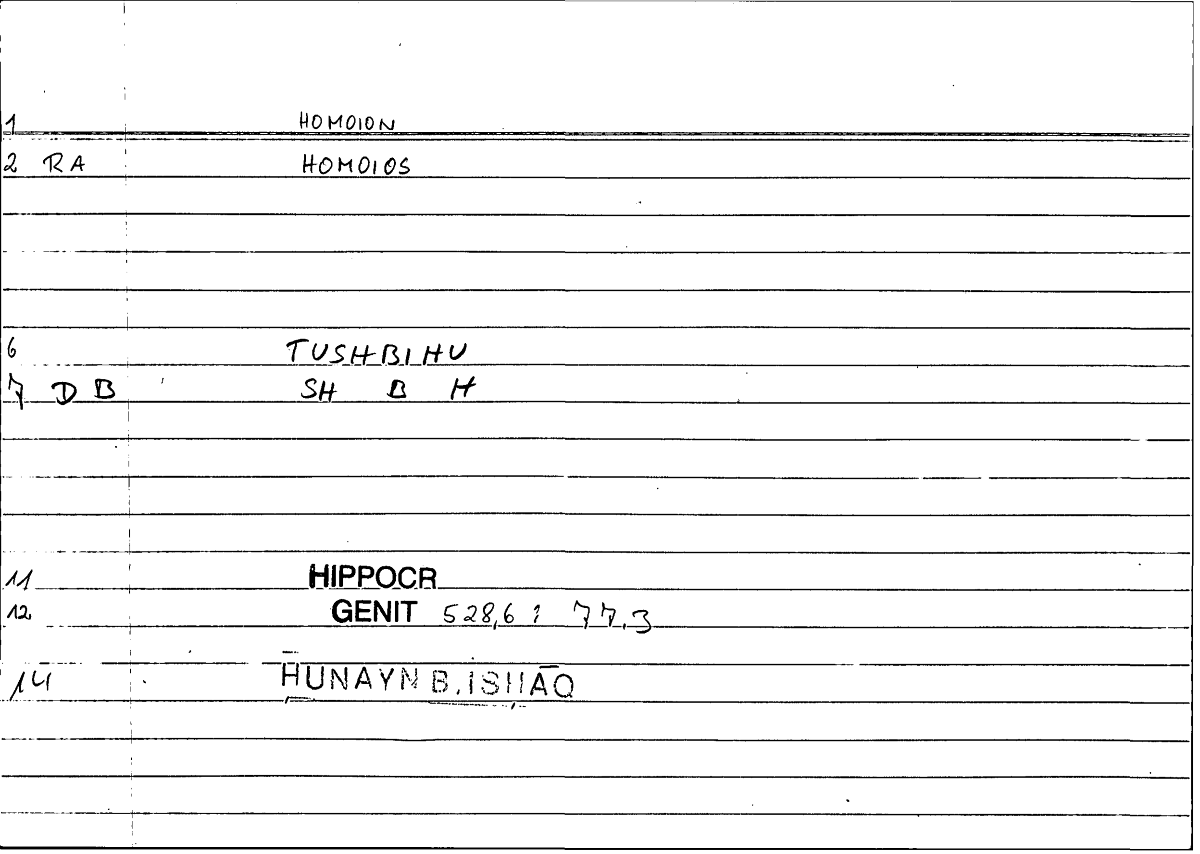 1 HOMOION
2 RA HOMOIOS
6 TUSHBIHU
7 DB SH B H
11 HIPPOCR
12 GENIT 528,6 : 77,3
14 HUNAYN B. ISHĀQ